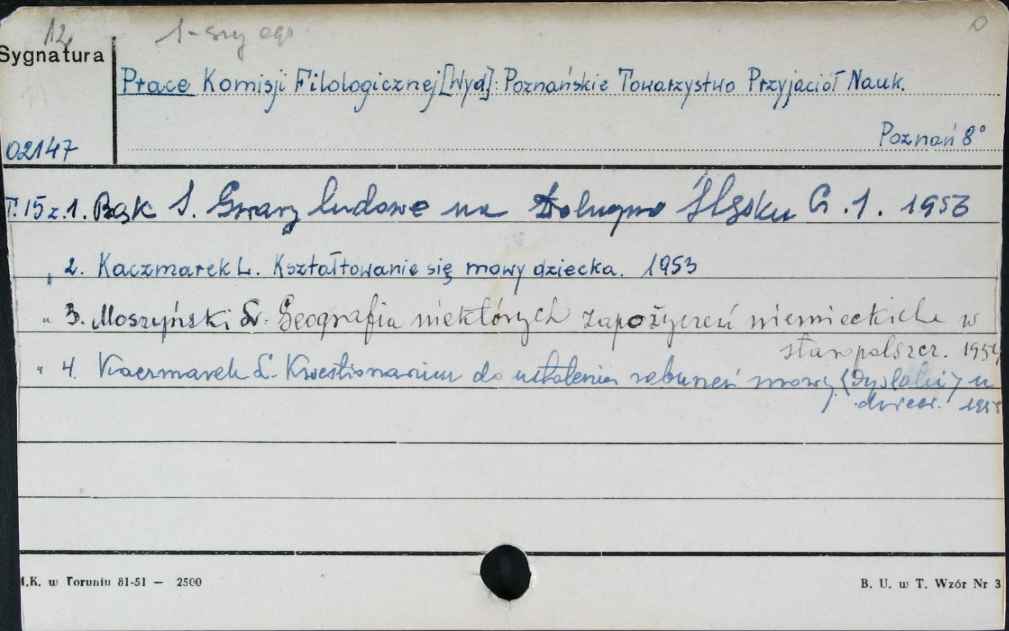 12 1-szy egz.
Sygnatura
Prace Komisji Filologicznej [Wyd]: Poznańskie Towarzystwo Przyjaciół Nauk.
Poznań 8°
02147
T. 15 z. 1. Bąk S. Gwary ludowe na Dolnym Śląsku Cz. 1. 1953
" 2. Kaczmarek L. Kształtowanie się mowy dziecka. 1953
" 3. Moszyński L. Geografia niektórych zapożyczeń niemieckich w
staropolszcz. 1954
" 4. Kaczmarek L. Kwestionariusz do ustalenia zaburzeń mowy (Dyslalii) u
dzieci. 195
.K. w Toruniu 81-51 — 2500
B. U. w T. Wzór Nr 3